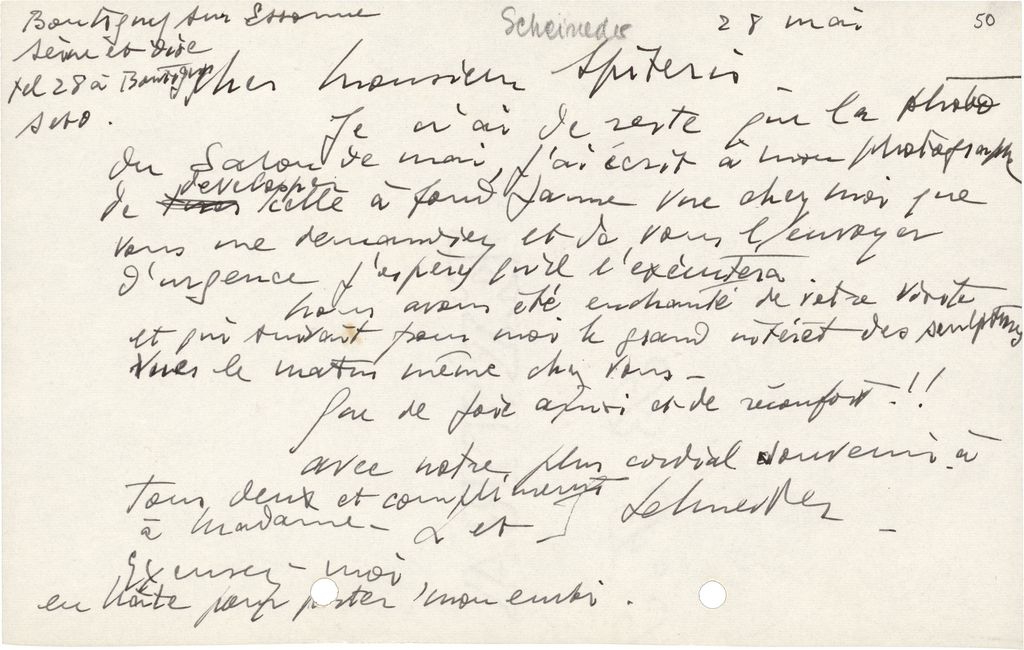 Boutigny sur Essonne
Seine et Oise
tel 28 à Boutigny
s/Eo.
Schneider
28 mai
50
Cher Monsieur Spiteris
Je n'ai de reste que la photo
du Salon de mai, j'ai écrit à mon photographe
developper
de celle à fond jaune vue chez moi que
vous me demandiez et de vous l'envoyer
d'urgence j'espère qu'il l'exécutera.
Nous avons été enchanté de votre visite
et qui suivait pour moi le grand intérêt des sculptures
vues le matin même chez vous –
Que de joie aussi et de réconfort!!!
avec notre plus cordial souvenir à
Tous deux et compliments
à Madame – L et J Schneider –
Excusez-moi
en hâte pour poster mon envoi.